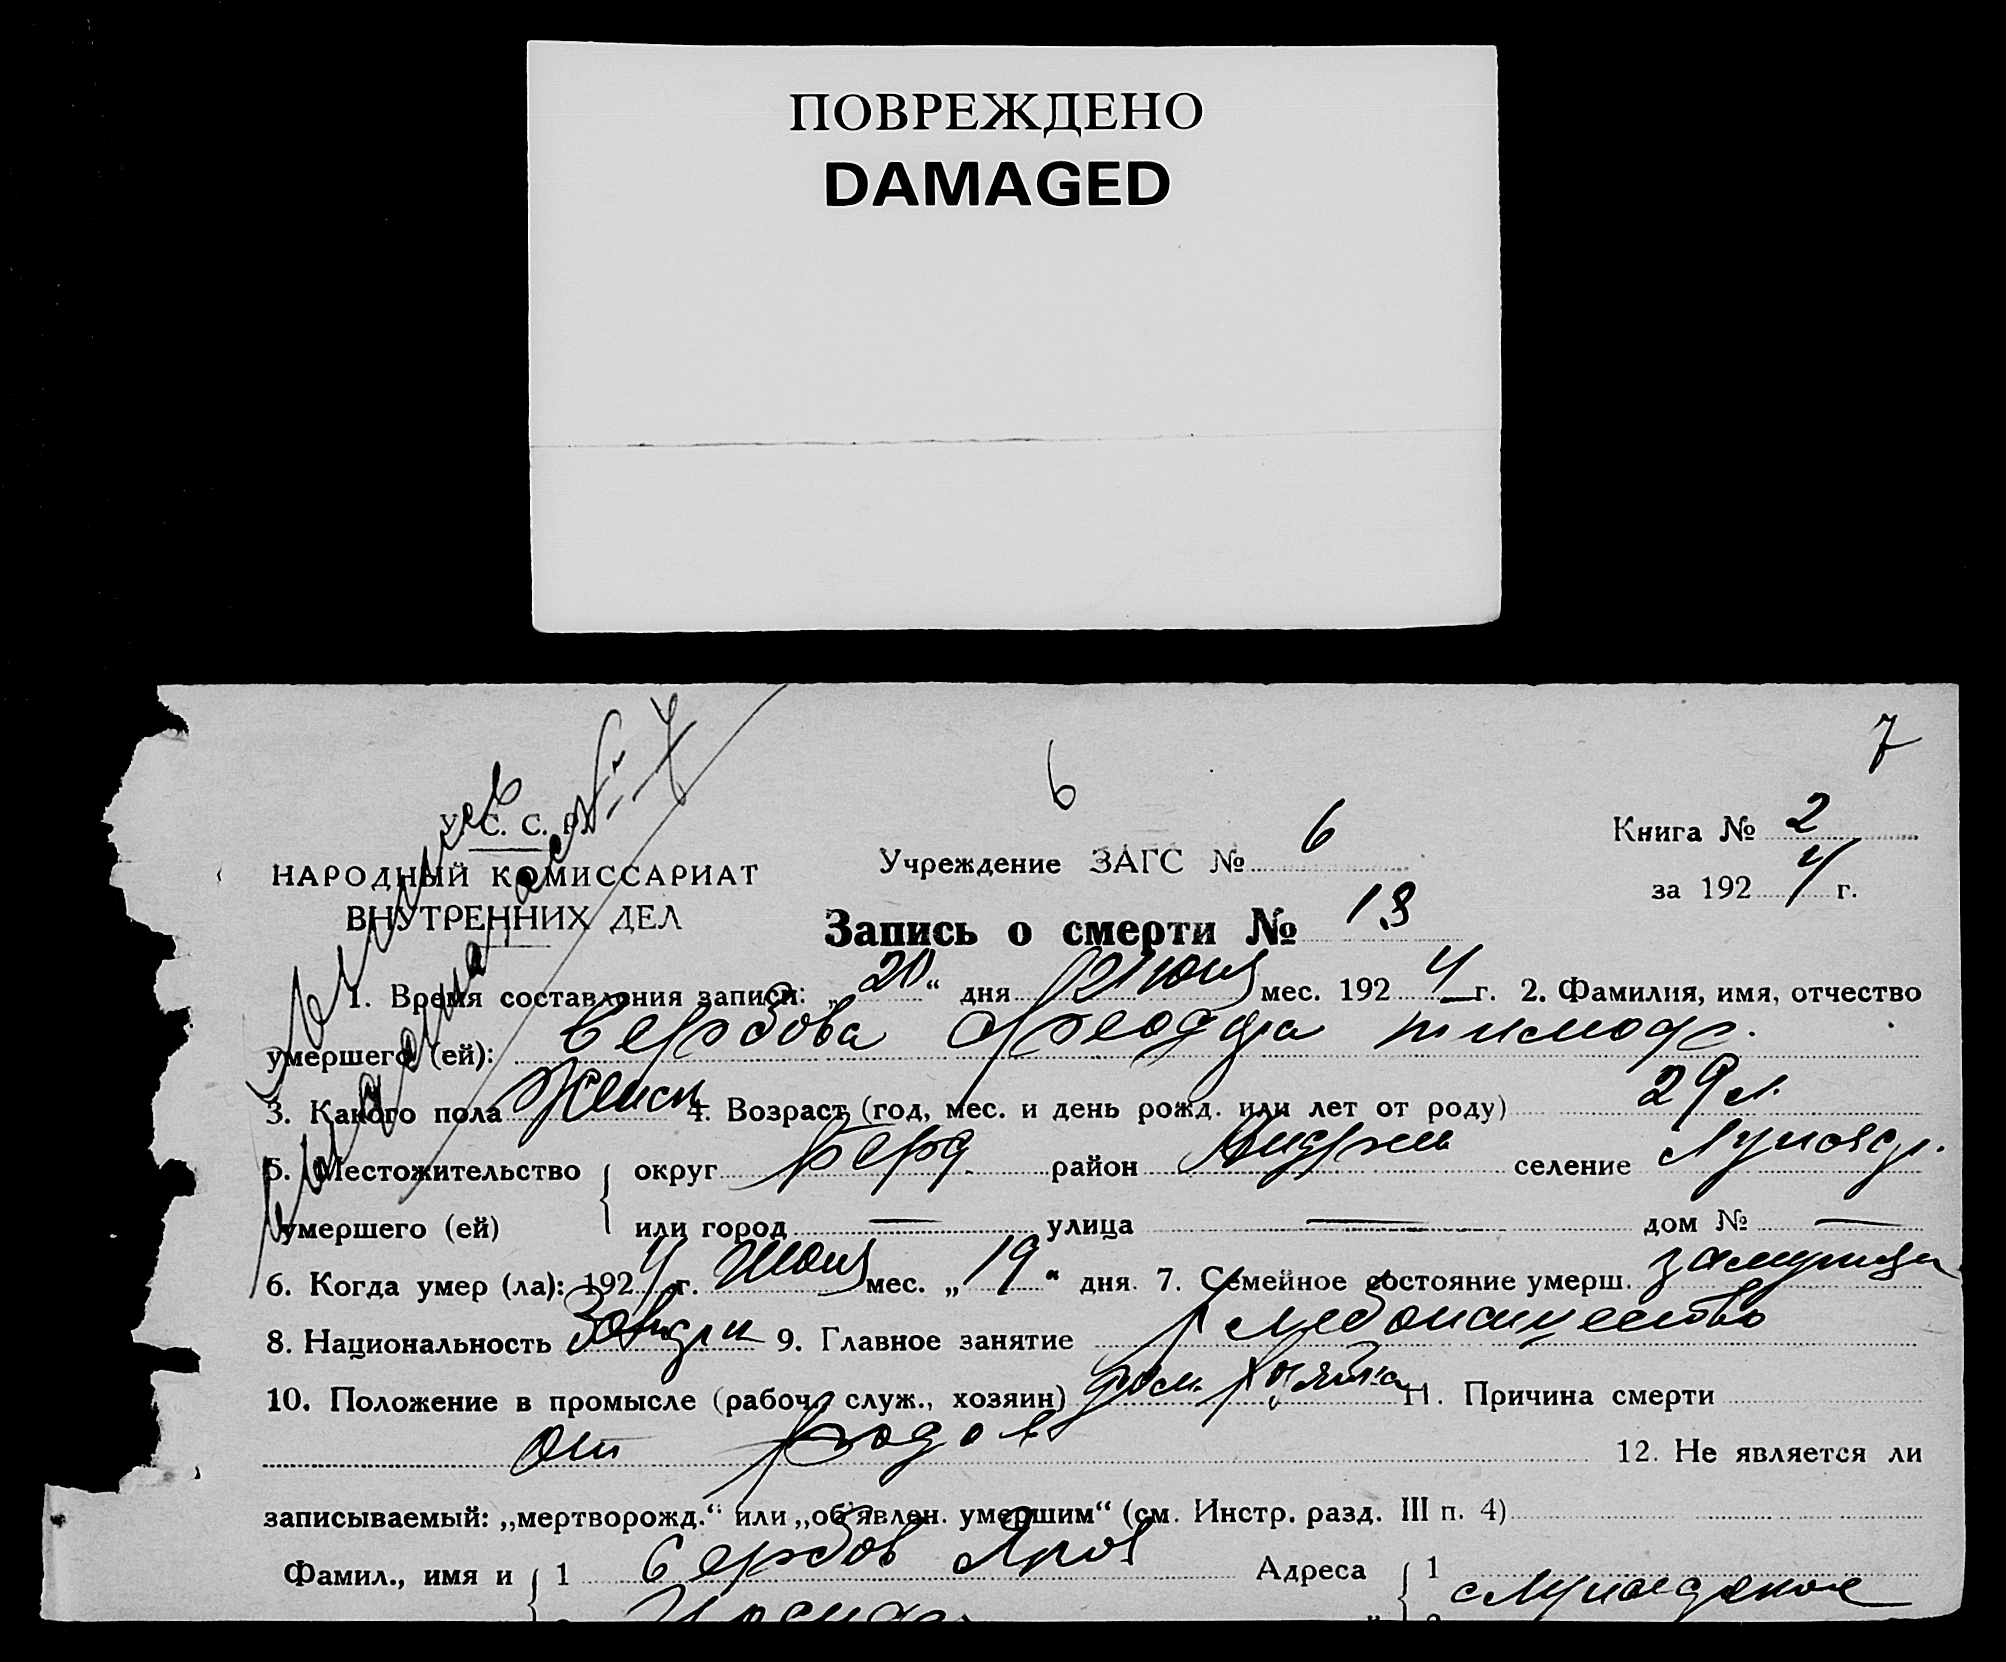 ПОВРЕЖДЕНО
DAMAGED
7
6
У. С. С. Р.
НАРОДНЫЙ КОМИССАРИАТ
ВНУТРЕННИХ ДЕЛ
Учреждение ЗАГС № 6
Книга № 2
за 1924 г.
Запись о смерти № 13
1. Время составления записи: „20“ дня Июня мес. 1924 г. 2. Фамилия, имя, отчество
умершего (ей): Сербова Тимоф.
3. Какого пола Женск 4. Возраст (год, мес. и день рожд. или лет от роду) 29 л.
5. Местожительство округ Берд район Андреев селение
умершего (ей) или город — улица — дом № —
6. Когда умер (ла): 1924 г. Июня мес. „19“ дня. 7. Семейное состояние умерш. замужняя
8. Национальность 9. Главное занятие хлебопашество
10. Положение в промысле (рабоч., служ., хозяин) дом. хозяйка 11. Причина смерти
от родов 12. Не является ли
записываемый: „мертворожд.“ или „об'явлен. умершим“ (см. Инстр. разд. III п. 4)
Фамил., имя и 1 Сербов Адреса 1